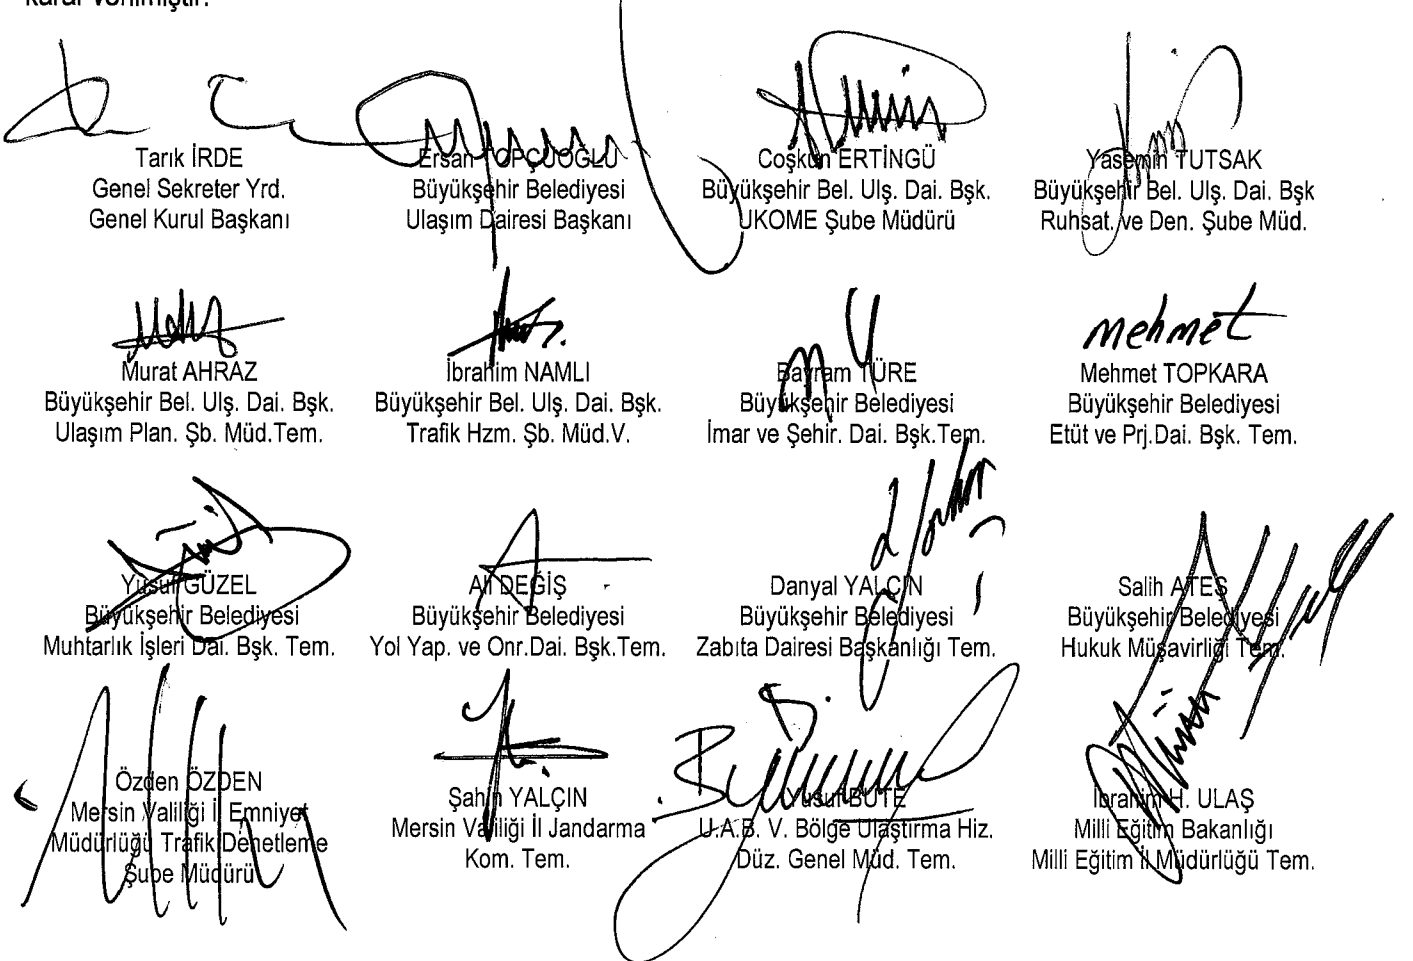 karar verilmiştir.
Tarık İRDE
Genel Sekreter Yrd.
Genel Kurul Başkanı
Ersan TOPÇUOĞLU
Büyükşehir Belediyesi
Ulaşım Dairesi Başkanı
Coşkun ERTİNGÜ
Büyükşehir Bel. Ulş. Dai. Bşk.
UKOME Şube Müdürü
Yasemin TUTSAK
Büyükşehir Bel. Ulş. Dai. Bşk
Ruhsat. ve Den. Şube Müd.
Murat AHRAZ
Büyükşehir Bel. Ulş. Dai. Bşk.
Ulaşım Plan. Şb. Müd.Tem.
İbrahim NAMLI
Büyükşehir Bel. Ulş. Dai. Bşk.
Trafik Hzm. Şb. Müd.V.
Bayram TÜRE
Büyükşehir Belediyesi
İmar ve Şehir. Dai. Bşk.Tem.
mehmet
Mehmet TOPKARA
Büyükşehir Belediyesi
Etüt ve Prj.Dai. Bşk. Tem.
Yusuf GÜZEL
Büyükşehir Belediyesi
Muhtarlık İşleri Dai. Bşk. Tem.
Ali DEĞİŞ
Büyükşehir Belediyesi
Yol Yap. ve Onr.Dai. Bşk.Tem.
Danyal YALÇIN
Büyükşehir Belediyesi
Zabıta Dairesi Başkanlığı Tem.
Salih ATEŞ
Büyükşehir Belediyesi
Hukuk Müşavirliği Tem.
Özden ÖZDEN
Mersin Valiliği İl Emniyet
Müdürlüğü Trafik Denetleme
Şube Müdürü
Şahin YALÇIN
Mersin Valiliği İl Jandarma
Kom. Tem.
Yusuf BÜTE
U.A.B. V. Bölge Ulaştırma Hiz.
Düz. Genel Müd. Tem.
İbrahim H. ULAŞ
Milli Eğitim Bakanlığı
Milli Eğitim İl Müdürlüğü Tem.